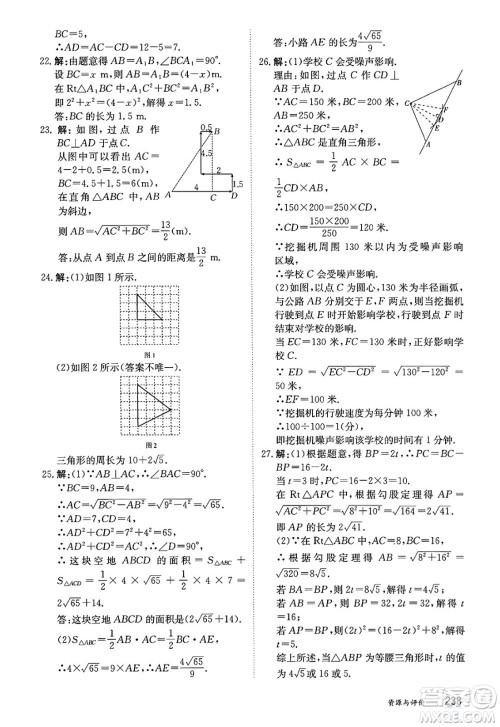 BC=5,
∴AD=AC-CD=12-5=7.
22. 解:由题意得 AB=A₁B₁,∠BCA₁=90°.
设 BC=x m,则 AB=A₁B₁=(4-x)m.
在 Rt△A₁B₁C 中,A₁B₁²=A₁C²+B₁C²,
即 2²+x²=(4-x)²,解得 x=1.5.
答:BC 的长为 1.5 m.
23. 解:如图,过点 B 作
BC⊥AD 于点 C.
从图中可以看出 AC=
4-2+0.5=2.5(m),
BC=4.5+1.5=6(m),
在直角△ABC 中,AB
为斜边,
则 AB=√AC²+BC²=13/2(m).
答:从点 A 到点 B 的距离是 13/2 m.
B
0.5
1.5
4.5
2
4
1.5
A
C
D
24. 解:(1)如图 1 所示.
图 1
(2)如图 2 所示(答案不唯一).
图 2
三角形的周长为 10+2√5.
25. 解:(1)∵AB⊥AC,∴∠BAC=90°.
∵BC=9,AB=4,
∴AC=√BC²-AB²=√9²-4²=√65.
∵AD=7,CD=4,
∴AD²+CD²=7²+4²=65.
∴AD²+CD²=AC².
∴∠D=90°.
∴这块空地 ABCD 的面积=S△ABC+
S△ACD=1/2×4×√65+1/2×4×7=2√65
+14.
答:这块空地 ABCD 的面积是(2√65+14).
(2)∵S△ABC=1/2AB·AC=1/2BC·AE,
∴4×√65=9×AE,∴AE=4√65/9.
答:小路 AE 的长为4√65/9.
26. 解:(1)学校 C 会受噪声影响.
理由:如图,过点 C 作 CD⊥
AB 于点 D,
∵AC=150 米,BC=200 米,
AB=250 米,
∴AC²+BC²=AB².
∴△ABC 是直角三角形.
∴S△ABC=1/2AC×BC=
1/2CD×AB,
∴150×200=250×CD,
∴CD=150×200/250=120(米).
∵挖掘机周围 130 米以内为受噪声影响
区域,
∴学校 C 会受噪声影响.
(2)如图,以点 C 为圆心,130 米为半径画弧,
与公路 AB 分别交于 E,F 两点,则挖掘机行
驶到点 E 时开始影响学校,行驶到点 F 时
结束对学校的影响.
当 EC=130 米,FC=130 米时,正好影响
学校 C.
∵ED=√EC²-CD²=√130²-120²=
50 米,
∴EF=100(米).
∵挖掘机的行驶速度为每分钟 100 米,
∴100÷100=1(分钟).
即挖掘机噪声影响该学校的时间为 1 分钟.
27. 解:(1)根据题意,得 BP=2t,PC=BC-
BP=16-2t=16-2×3=10.
当 t=3 时,PC=16-2×3=10.
在 Rt△APC 中,根据勾股定理得 AP=
√AC²+PC²=√8²+10²=√164=2√41.
即 AP 的长为 2√41.
(2)根据勾股定理得 AB=√8²+16²=
√320=8√5.
若 BA=BP,则 2t=8√5,解得 t=4√5;
若 AB=AP,则 BP=32,即 2t=32,解得 t
=16;
若 PA=PB,则(2t)²=(16-2t)²+8²,解得
t=5.
综上所述,当△ABP 为等腰三角形时,t 的
值为 4√5或 16 或 5.
资源与评价
238